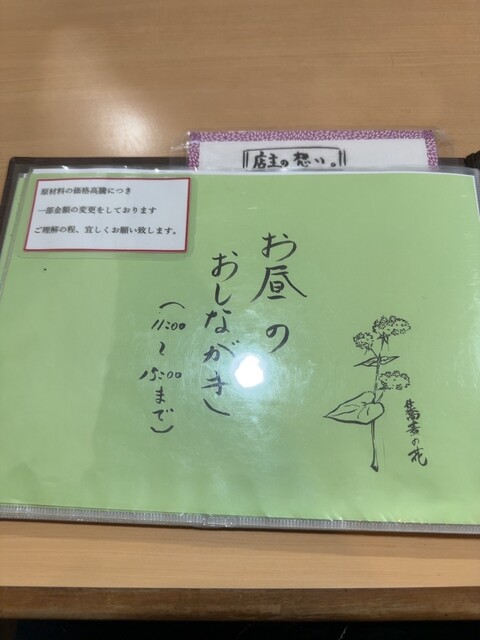 店主の想い。
原材料の価格高騰につき
一部金額の変更をしております
ご理解の程、宜しくお願い致します。
お昼の
おしながき
(11:00
~
15:00まで)
蕎麦の花